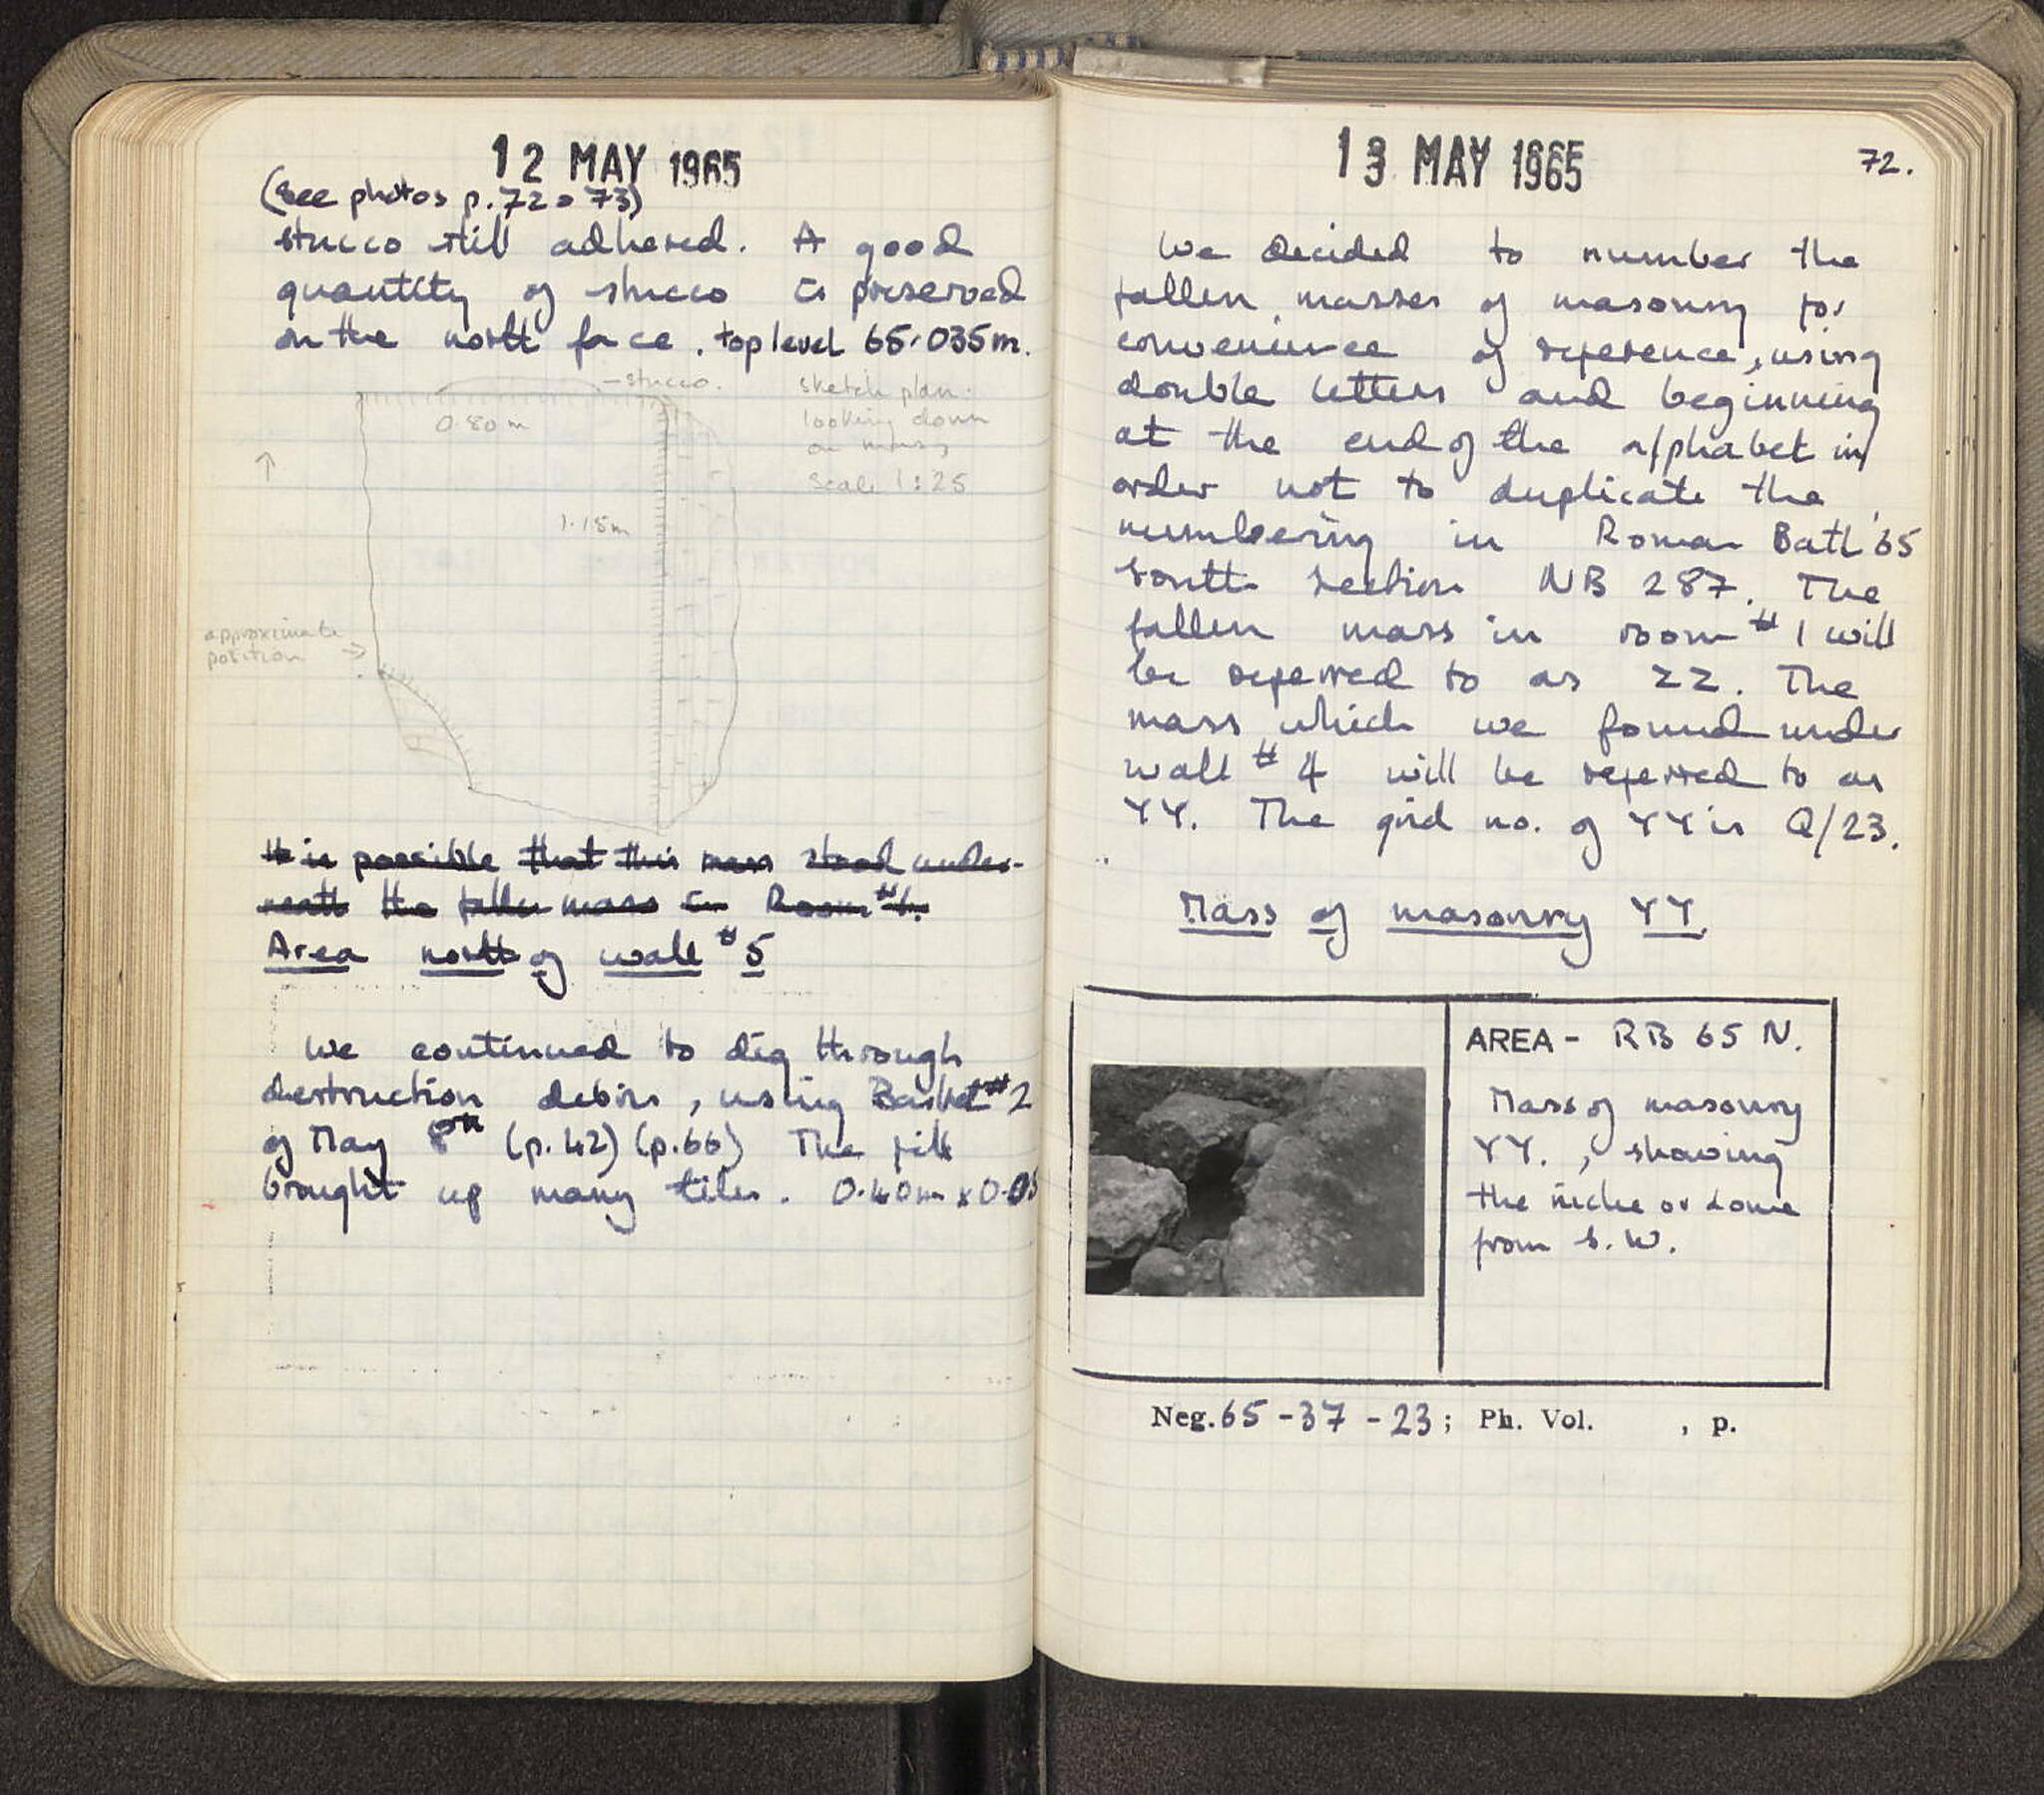 12 MAY 1965
(See photos p. 72 & 73)
stucco still adhered. A good
quantity of stucco is preserved
on the north face. top level 65.035m.
—stucco.
sketch plan.
looking down
on mass
Scale 1:25
0.80m
1.15m
approximate
position
It is possible that this mass stood under-
neath the fallen mass in Room #1.
Area north of wall #5
We continued to dig through
destruction debris, using Basket #2
of May 8th (p.42) (p.66) The fill
brought up many tiles. 0.40m x 0.05
13 MAY 1965
72.
We decided to number the
fallen masses of masonry for
convenience of reference, using
double letters and beginning
at the end of the alphabet in
order not to duplicate the
numbering in Roman Bath '65
South Section NB 287. The
fallen mass in room #1 will
be referred to as ZZ. The
mass which we found under
wall #4 will be referred to as
YY. The grid no. of YY is Q/23.
Mass of masonry YY.
AREA - RB 65 N.
Mass of masonry
YY., showing
the niche or dome
from S.W.
Neg. 65-37-23; Ph. Vol. , p.